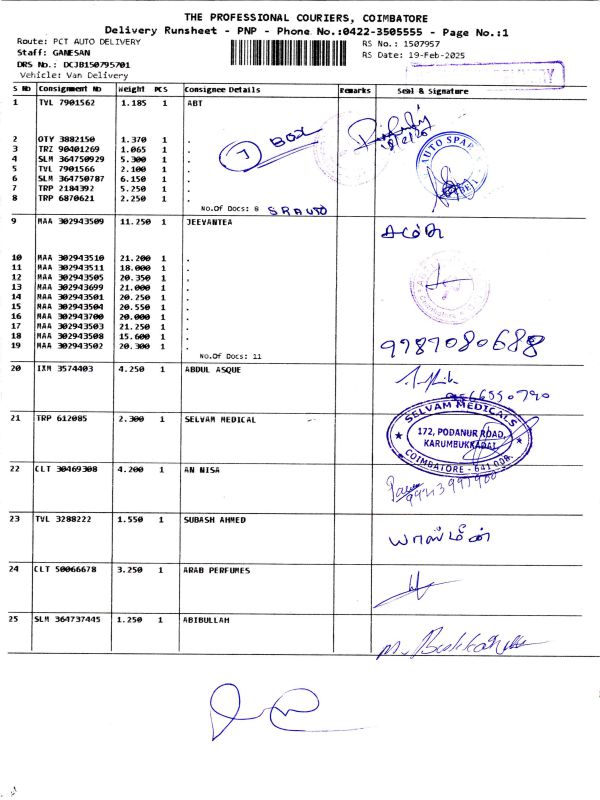 THE PROFESSIONAL COURIERS, COIMBATORE
Delivery Runsheet - PNP - Phone No.:0422-3505555 - Page No.:1
Route: PCT AUTO DELIVERY RS No.: 1507957
Staff: GANESAN RS Date: 19-Feb-2025
DRS No.: DCJB150795701
Vehicle: Van Delivery
S No Consignment No Weight PCS Consignee Details Remarks Seal & Signature
1 TVL 7901562 1.185 1 ABT
2 OTY 3882150 1.370 1 .
3 TRZ 90401269 1.065 1 .
4 SLM 364750929 5.300 1 .
5 TVL 7901566 2.100 1 .
6 SLM 364750787 6.150 1 .
7 TRP 2184392 5.250 1 .
8 TRP 6870621 2.250 1 .
7 BOX
AUTO SPAR
No.Of Docs: 8 SR AUTO
9 MAA 302943509 11.250 1 JEEVANTEA
10 MAA 302943510 21.200 1 .
11 MAA 302943511 18.000 1 .
12 MAA 302943505 20.350 1 .
13 MAA 302943699 21.000 1 .
14 MAA 302943501 20.250 1 .
15 MAA 302943504 20.550 1 .
16 MAA 302943700 20.000 1 .
17 MAA 302943503 21.250 1 .
18 MAA 302943508 15.600 1 .
19 MAA 302943502 20.300 1 .
9787080688
No.Of Docs: 11
20 IXM 3574403 4.250 1 ABDUL ASQUE
9566550790
21 TRP 612085 2.300 1 SELVAM MEDICAL
SELVAM MEDICALS
172, PODANUR ROAD,
KARUMBUKKADAI,
COIMBATORE - 641 008.
22 CLT 30469308 4.200 1 AN NISA
23 TVL 3288222 1.550 1 SUBASH AHMED
யாஸ்மீன்
24 CLT 50066678 3.250 1 ARAB PERFUMES
25 SLM 364737445 1.250 1 ABIBULLAH